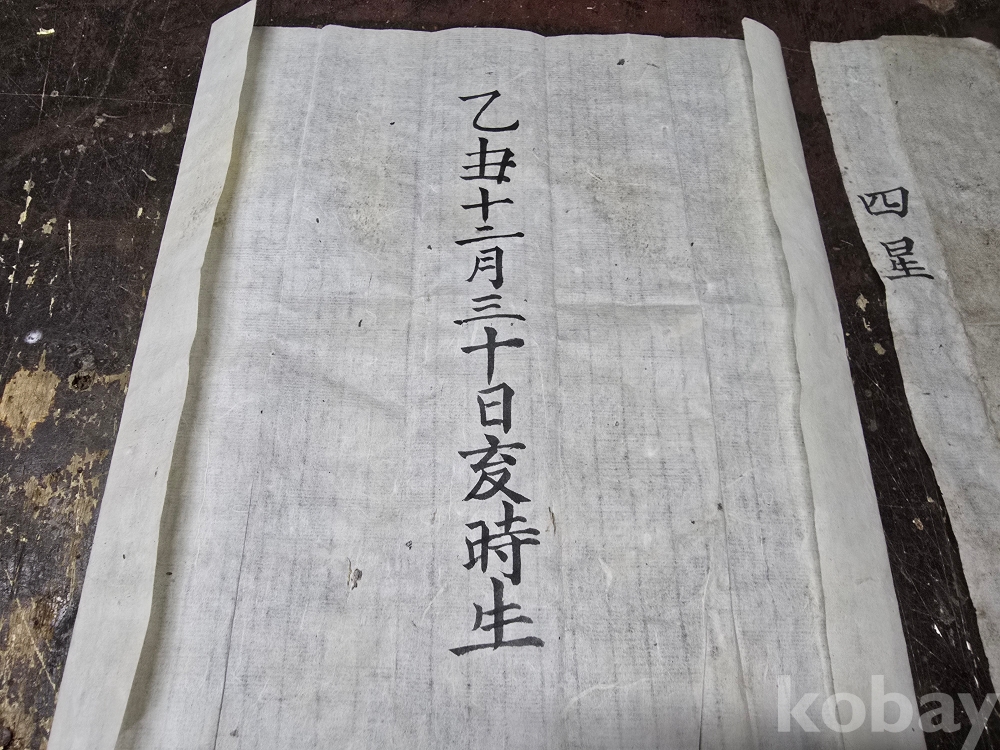 乙丑十二月三十日亥時生
四星
kobay